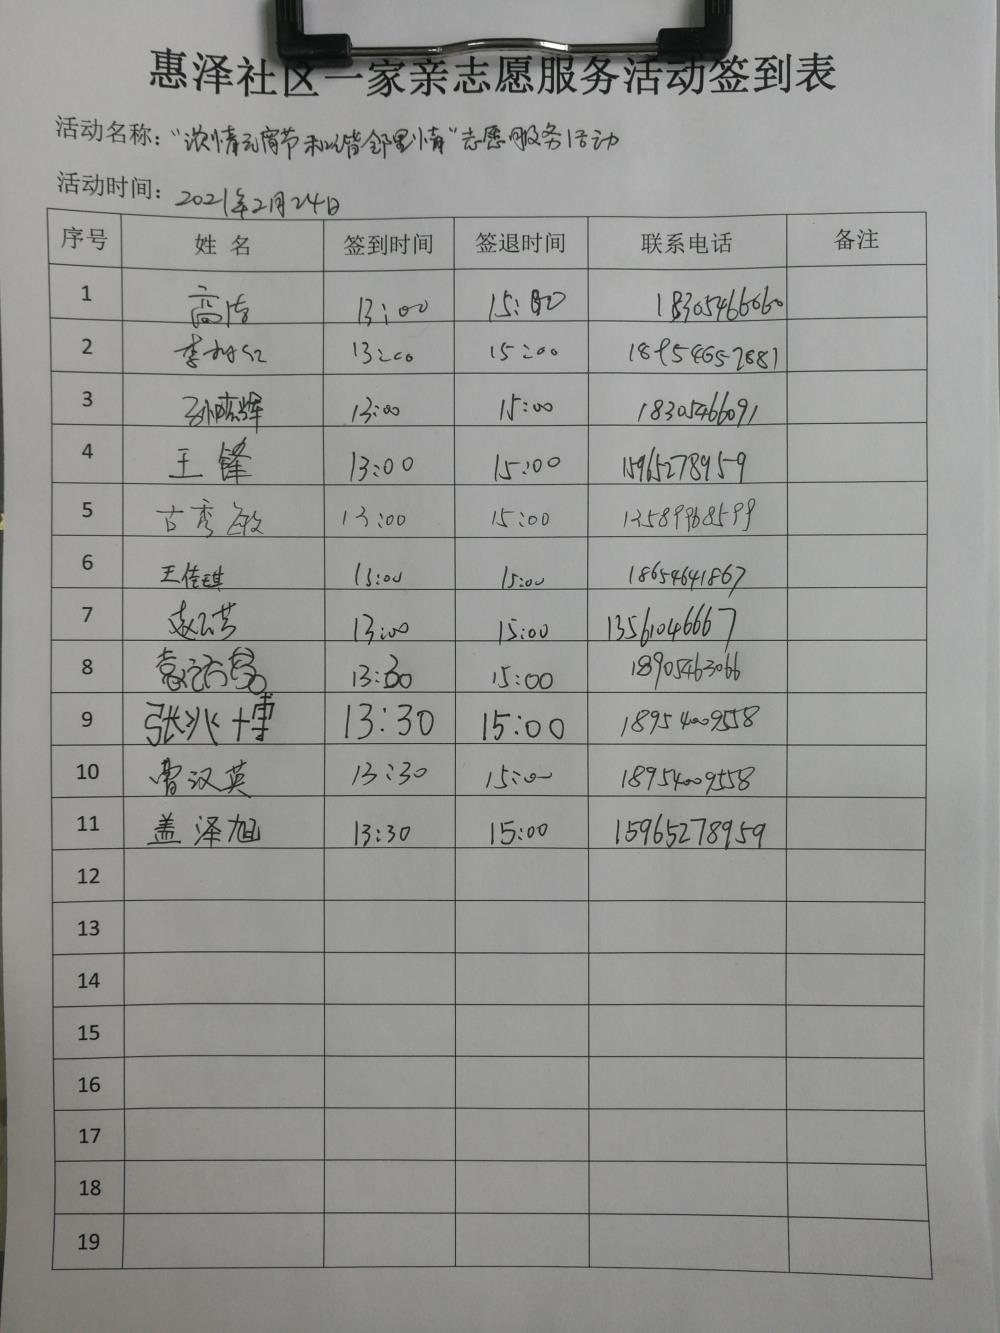 惠泽社区一家亲志愿服务活动签到表
活动名称：“浓情元宵节 和谐邻里情”志愿服务活动
活动时间：2021年2月24日
序号 姓名 签到时间 签退时间 联系电话 备注
1 高洁 13:00 15:00 18305466060
2 李 13:00 15:00 18954657881
3 孙晓辉 13:00 15:00 18305466091
4 王锋 13:00 15:00 15965278959
5 古秀敏 13:00 15:00 13589968599
6 王佳琪 13:00 15:00 18654641867
7 赵云芳 13:00 15:00 13561046667
8 13:30 15:00 18905463066
9 张兆博 13:30 15:00 18954009558
10 曹汉英 13:30 15:00 18954009558
11 盖泽旭 13:30 15:00 15965278959
12
13
14
15
16
17
18
19